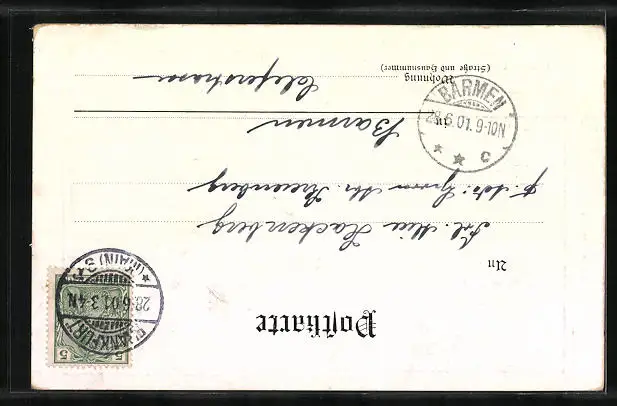 Postkarte
An
Frl. Mia Hackenberg
p. Adr: Herrn Mr.
in Barmen
Wohnung
(Straße und Hausnummer)
5 5
FRANKFURT
28.6.01. 3-4N
* (MAIN) 9 *
BARMEN
28.6.01. 9-10N
* * c